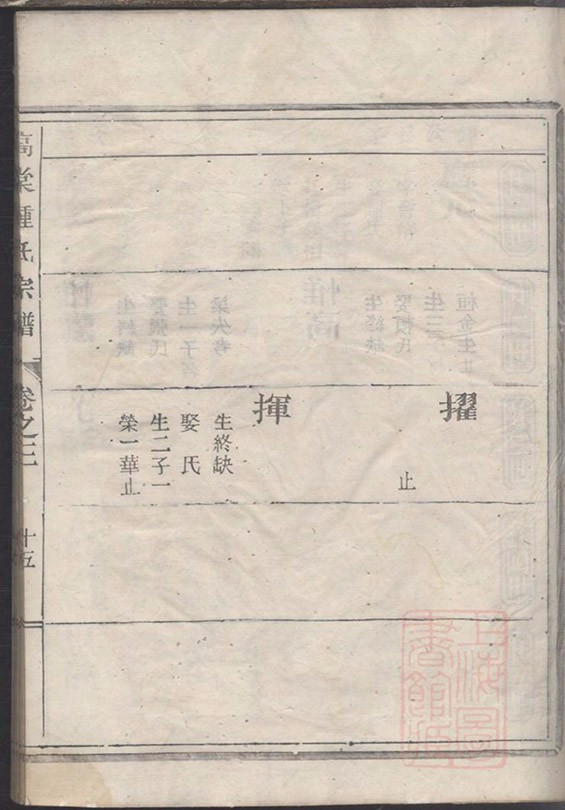 擢
止
揮
生終缺
娶　氏
生二子一
榮一華止
高棠鍾氏宗譜
卷之三
十五
上海圖書館藏